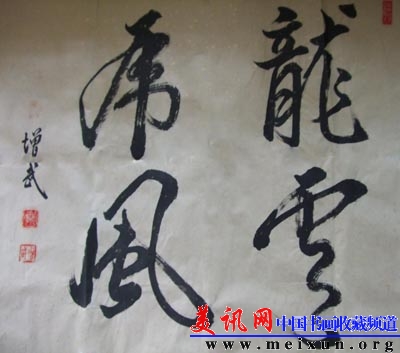 龍雲
虎風
增武
美讯网中国书画收藏频道
www.meixun.org